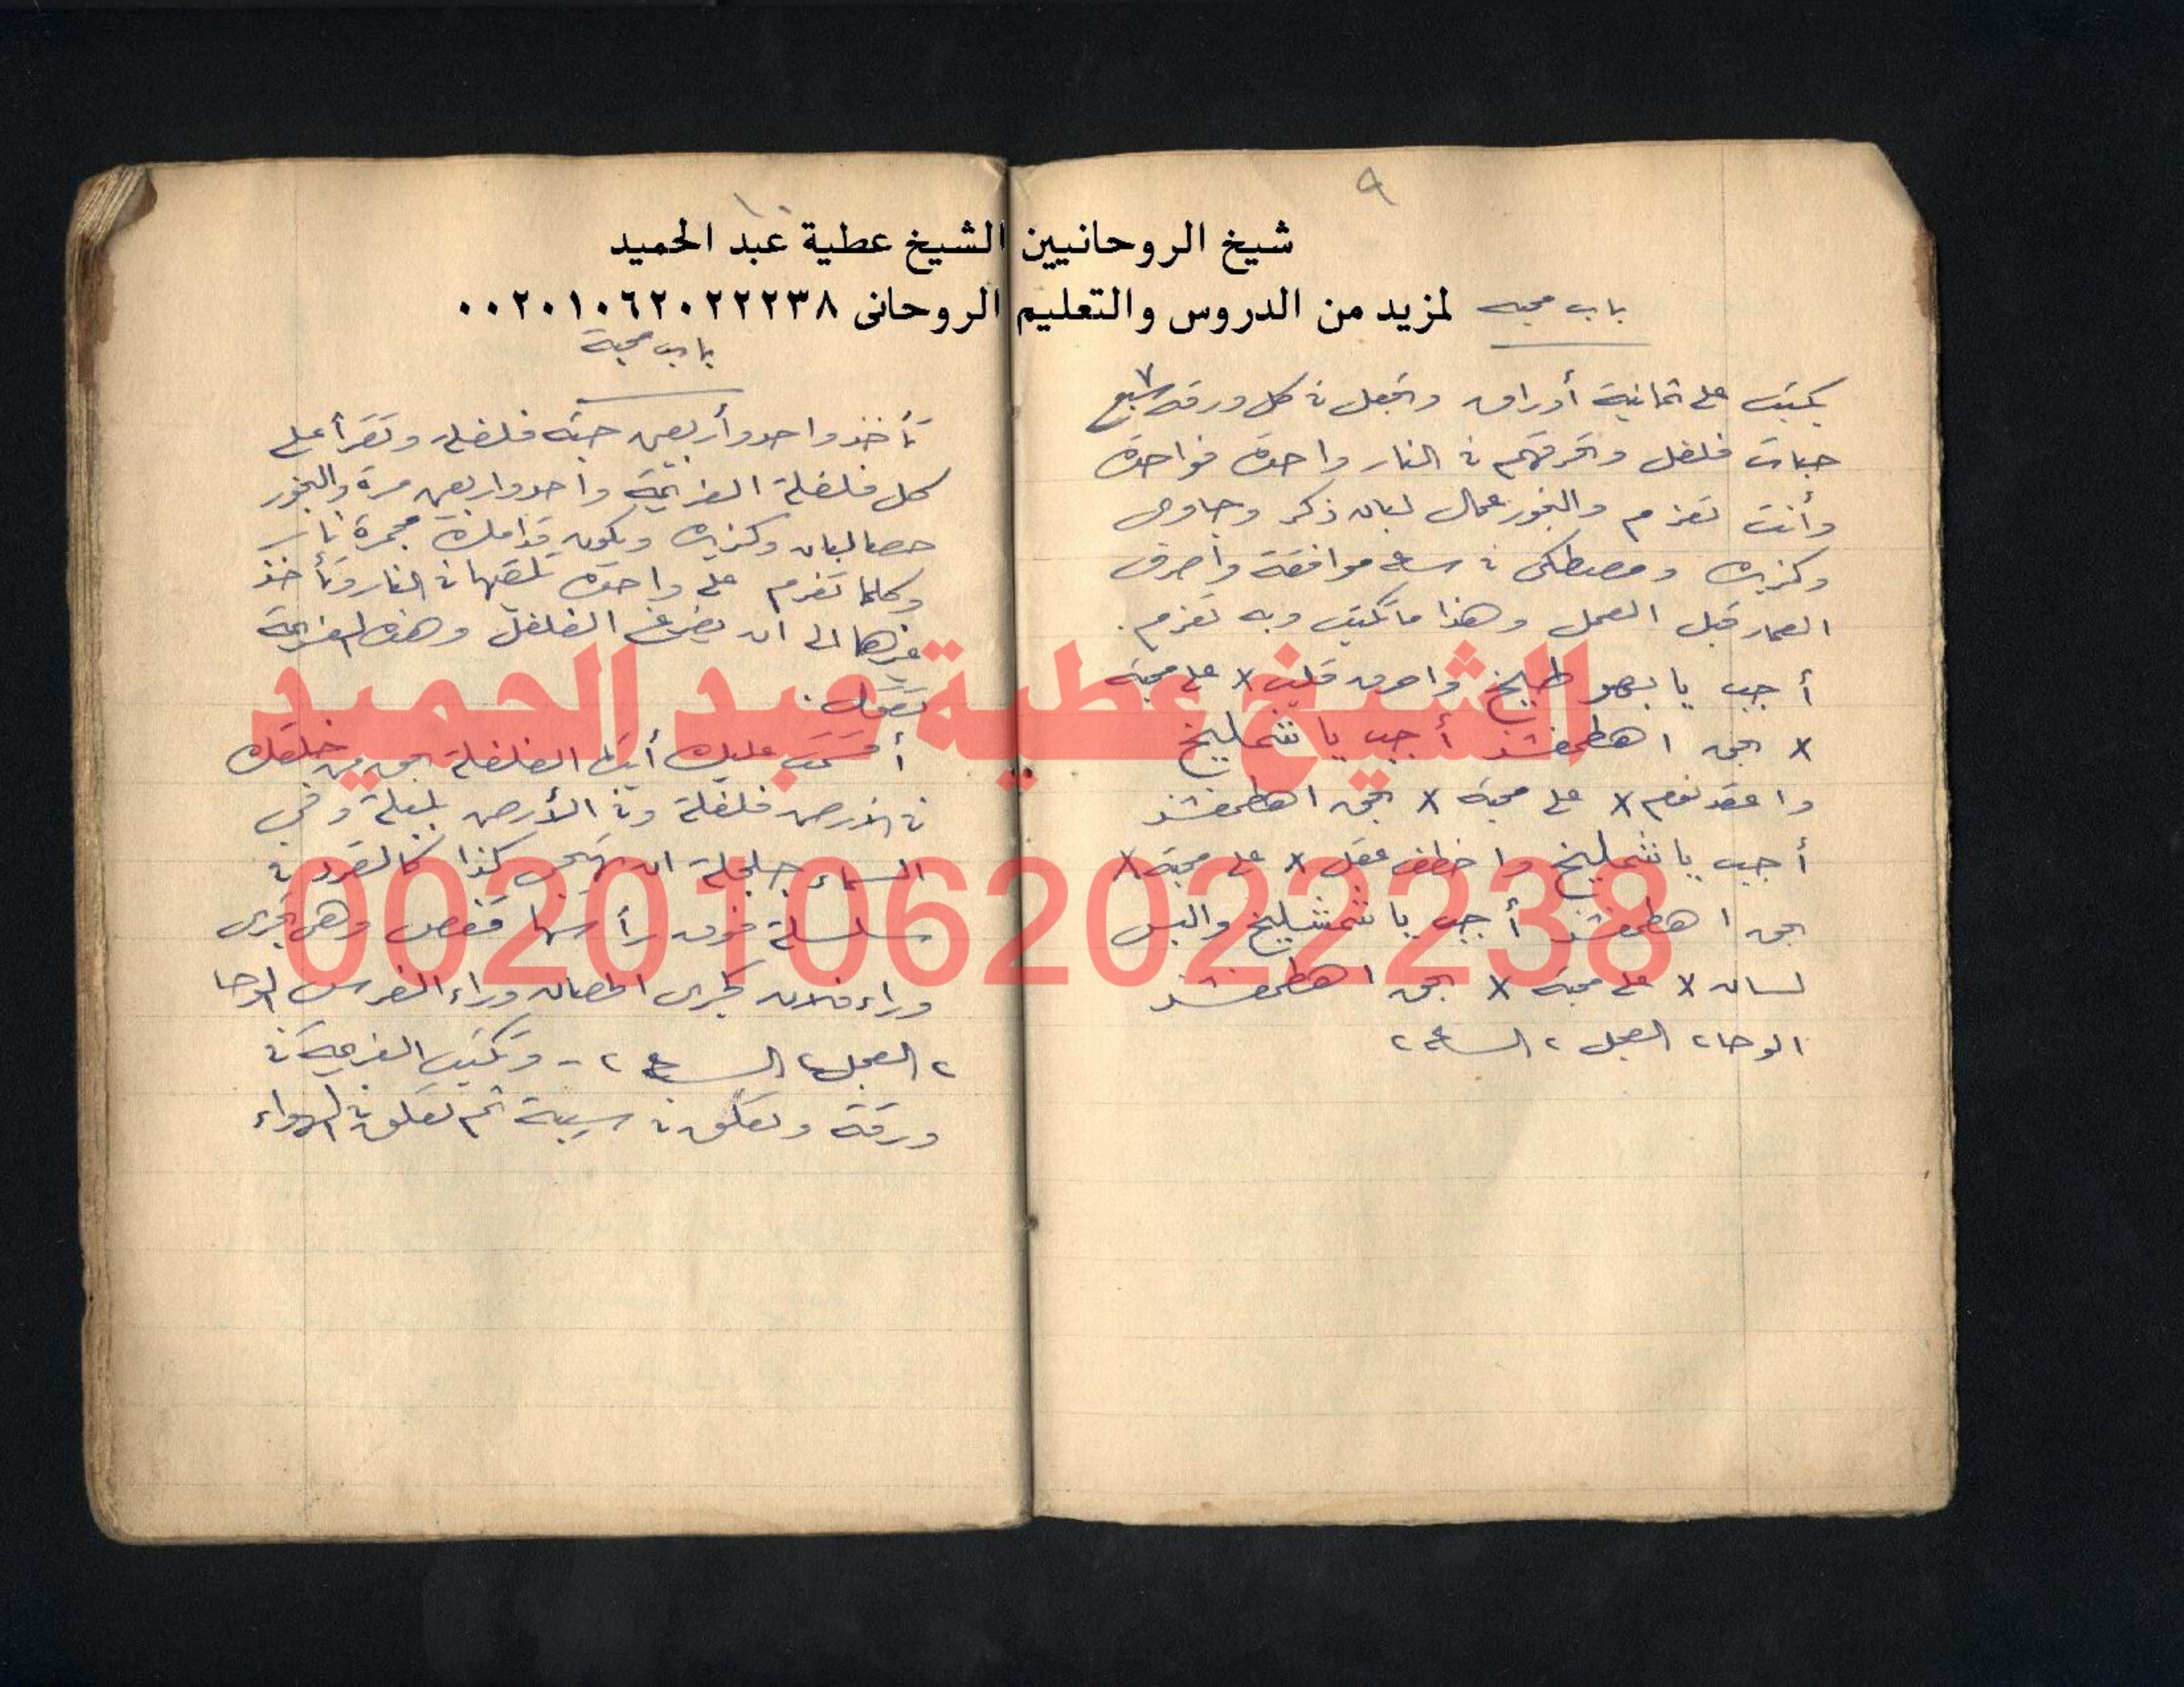 ٩
١٠
شيخ الروحانيين الشيخ عطية عبد الحميد
لمزيد من الدروس والتعليم الروحانى ٠٠٢٠١٠٦٢٠٢٢٢٣٨
باب محبه
يكتب على ثمانية أوراق وتجعل فى كل ورقه سبع ٧
حبات فلفل وتحرقهم فى النار واحدة فواحدة
وأنت تعزم والبخور عمال لبان ذكر وجاوى
وكزبره ومصطكى فى ساعه موافقة واصرف
العمار قبل العمل وهذا ما تكتب وبه تعزم .
أجب يا واحرق قلب x على محبة
x بحق اهطمفشذ أجب يا شمليخ
واعقد نوم x على محبة x بحق اهطمفشذ
أجب يا شمليخ واخطف عقل x على محبة x
بحق اهطمفشذ أجب يا والبس
لسان x على محبة x بحق اهطمفشذ
الوحا ٢ العجل ٢ الساعه ٢
باب محبة
تأخذ واحد وأربعين حبة فلفل وتقرأ على
كل فلفلة العزيمة واحد واربعين مرة والبخور
حصا لبان وكزبره ويكون قدامك مجمرة نار
وكلما تعزم على واحدة تلقيها فى النار وتأخذ
غيرها الى ان يفرغ الفلفل وهذه العزيمة
تقول :
أقسمت عليك أيتها الفلفلة بحق من خلقك
فى الأرض فلفلة وفى الأرض بلبلة وفي
السماء جلجلة ان تهيجى كذا كالقرد فى
سلسلة فوق رأسها قفص وهى تجرى
وراء فلان كجرى الحصان وراء الفرس الوحا
٢ العجل ٢ الساعه ٢ - وتكتب العزيمة فى
ورقة وتعلق فى سيبة ثم تعلق فى الهواء
الشيخ عطية عبد الحميد
00201062022238